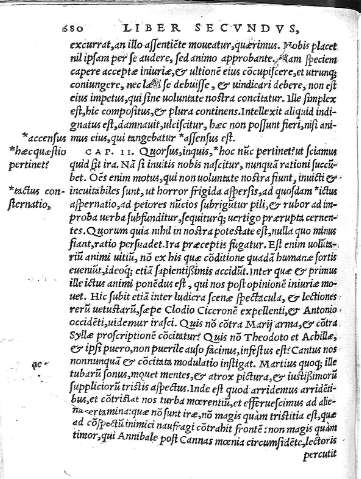 680 LIBER SECVNDVS,
excurrat, an illo assentiẽte moueatur, quærimus. Nobis placet
nil ipsam per se audere, sed animo approbante. Nam speciem
capere acceptæ iniuriæ, & ultionẽ eius cõcupiscere, et utrunq;
coniungere, nec lædi se debuisse, & uindicari debere, non est
eius impetus, qui sine uoluntate nostra concitatur. Ille simplex
est, hic compositus, & plura continens. Intellexit aliquid indi-
gnatus est, damnauit, ulciscitur, hæc non possunt fieri, nisi ani-
*accensus mus eius, qui tangebatur *assensus est.
*hæc quæstio CAP. II. Quorsus, inquis, *hoc nũc pertinet? ut sciamus
pertinet? quid sit ira. Nã si inuitis nobis nascitur, nunquã rationi succũ-
bet. Oẽs enim motus, qui non uoluntate nostra fiunt, inuicti &
*tactus con ineuitabiles sunt, ut horror frigida aspersis, ad quosdam *ictus
sternatio, aspernatio, ad peiores nũcios subrigũtur pili, & rubor ad im-
proba uerba subfunditur, sequiturq; uertigo prærupta cernen-
tes. Quorum quia nihil in nostra potestate est, nulla quo minus
fiant, ratio persuadet. Ira præceptis fugatur. Est enim uolũta-
riũ animi uitiũ, nõ ex his quæ cõditione quadã humanæ sortis
eueniũt, ideoq; etiã sapientissimis accidũt. Inter quæ & primus
ille ictus animi ponẽdus est, qui nos post opinionẽ iniuriæ mo-
uet. Hic subit etiã inter ludicra scenæ spectacula, & lectiones
rerũ uetustarũ, sæpe Clodio Ciceronẽ expellenti, & Antonio
occidẽti, uidemur irasci. Quis nõ cõtra Marij arma, & cõtra
Syllæ proscriptionẽ cõcitatur? Quis nõ Theodoto et Achillæ,
& ipsi puero, non puerile auso facinus, infestus est? Cantus nos
nonnunquã & cõcitata modulatio instigat. Martius quoq; ille
tubarũ sonus, mouet mentes, & atrox pictura, & iustissimorũ
suppliciorũ tristis aspectus. Inde est quod arridemus arridẽti-
bus, et cõtristat nos turba mœrentiũ, et efferuescimus ad alie-
na certamina: quæ nõ sunt iræ, nõ magis quàm tristitia est, quæ
ad cõspectũ inimici naufragi cõtrahit frontẽ: non magis quàm
timor, qui Annibale post Cannas mœnia circumsidẽte, lectoris
percutit